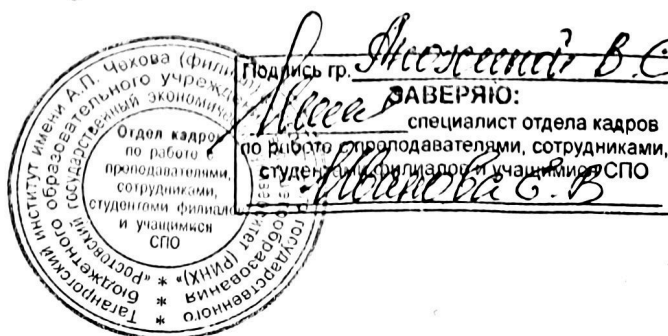 Подпись гр. В.
ЗАВЕРЯЮ:
специалист отдела кадров
по работе с преподавателями, сотрудниками,
студентами филиалов и учащимися СПО
Иванова Е. В
Таганрогский институт имени А.П. Чехова (филиал)
бюджетного образовательного учрежд
государственного
образования
«Ростовский государственный экономиче
ситет (РИНХ)»
Отдел кадров
по работе с
преподавателями,
сотрудниками,
студентами филиал
и учащимися
СПО